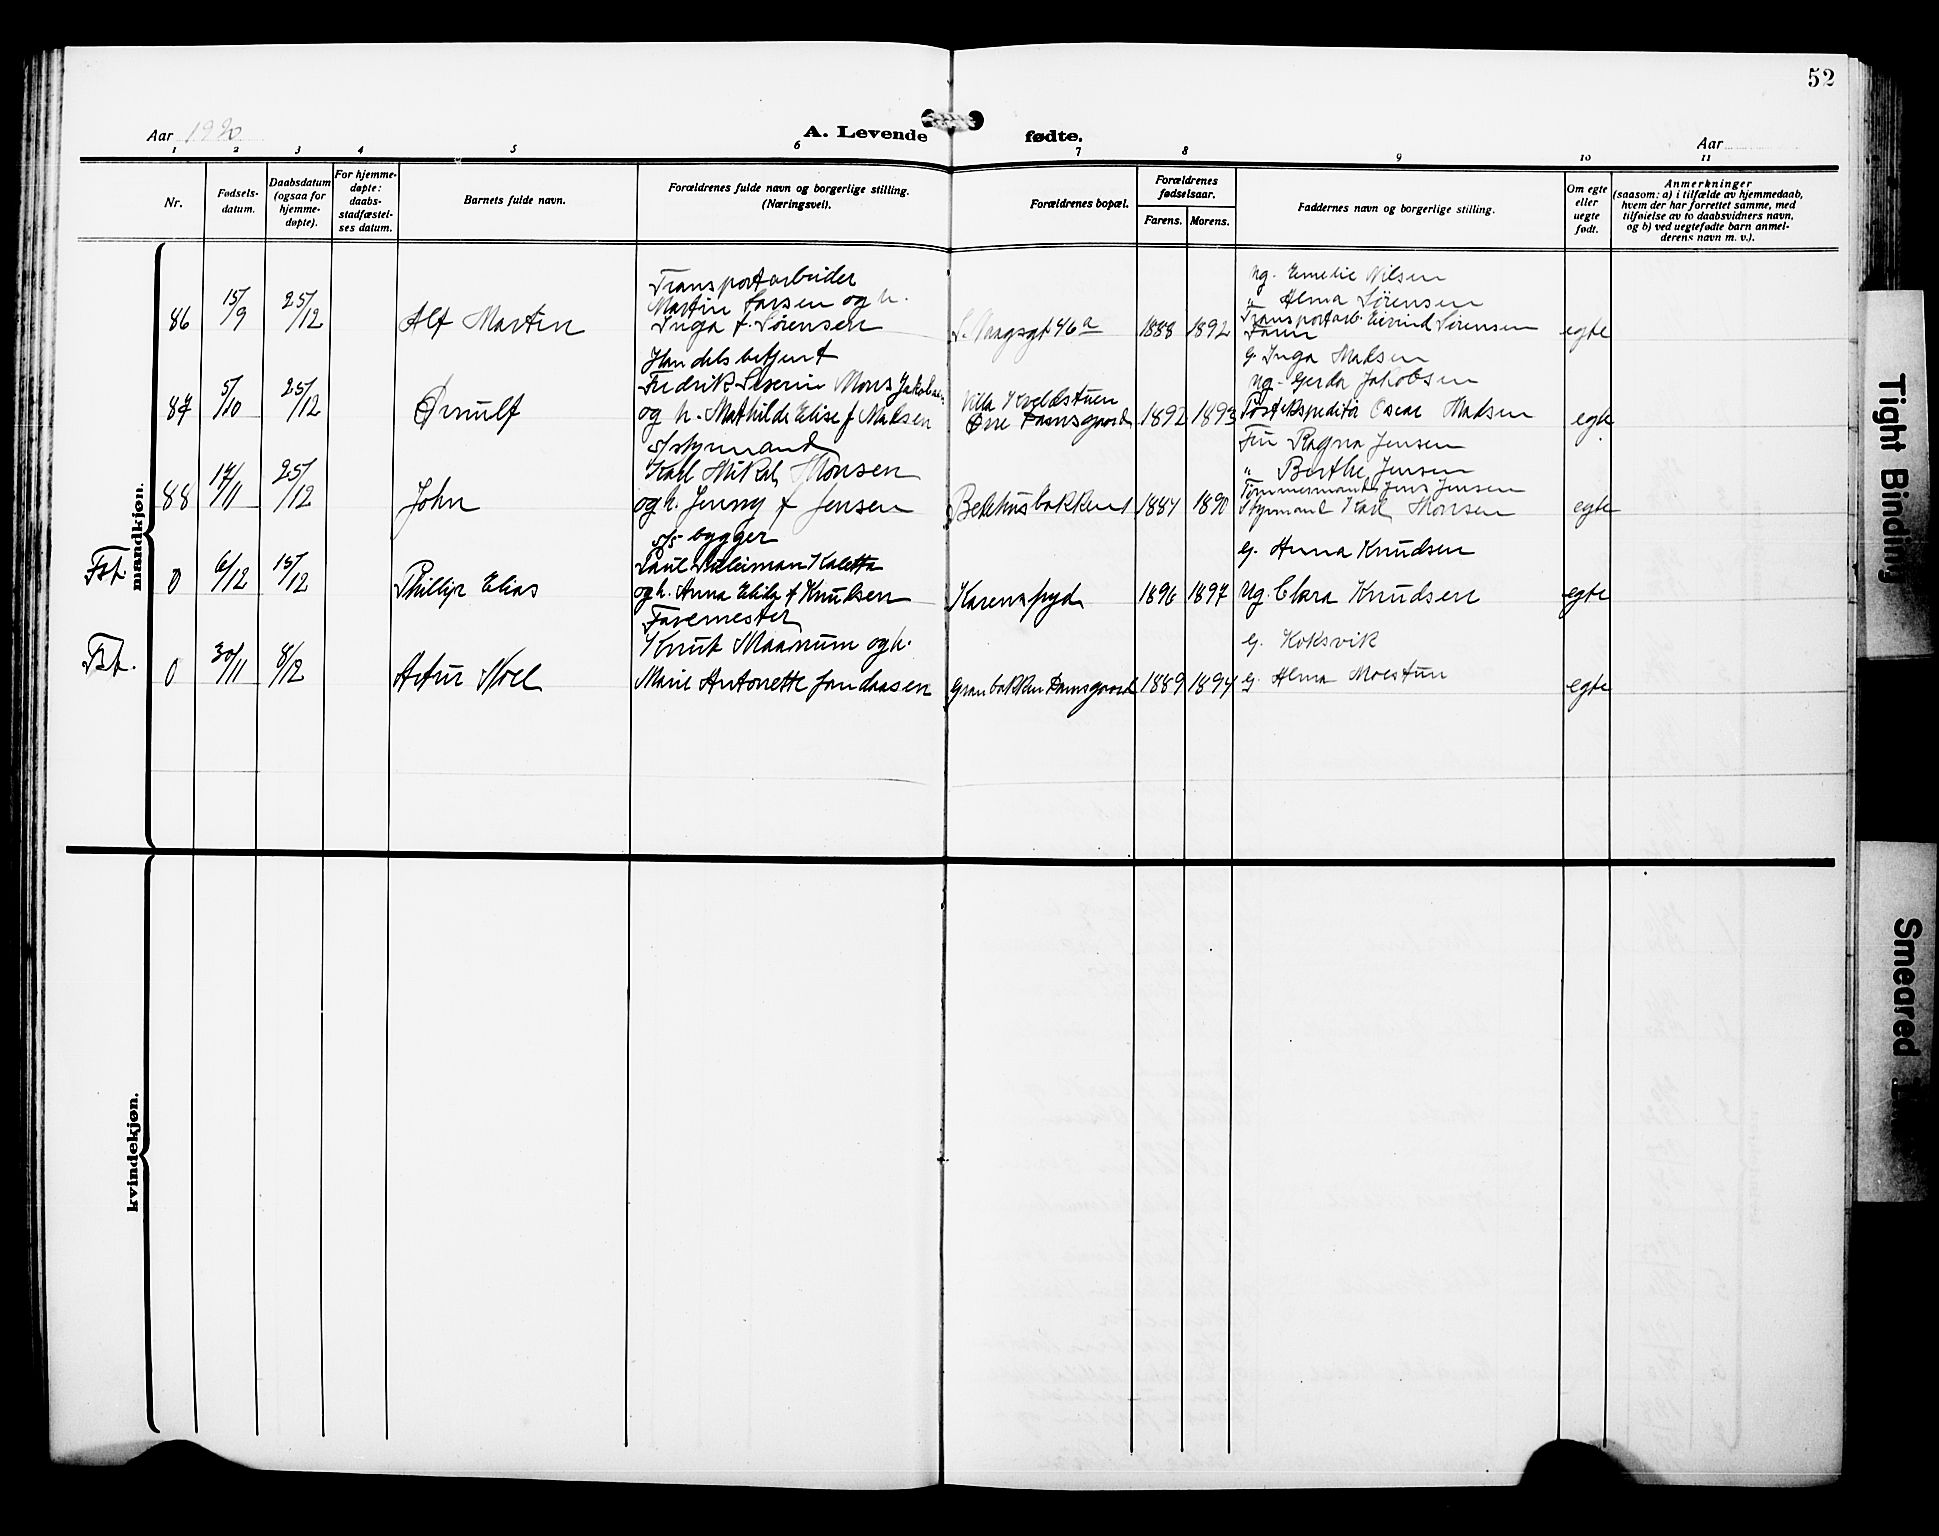 52
Aar 1920
A. Levende fødte.
Aar
1 2 3 4 5 6 7 8 9 10 11
Nr.
Fødsels-
datum.
Daabsdatum
(ogsaa for
hjemme-
døpte).
For hjemme-
døpte:
daabs-
stadfæstel-
ses datum.
Barnets fulde navn.
Forældrenes fulde navn og borgerlige stilling.
(Næringsvei).
Forældrenes bopæl.
Forældrenes
fødselsaar.
Farens. Morens.
Faddernes navn og borgerlige stilling.
Om egte
eller
uegte
født.
Anmerkninger
(saasom: a) i tilfælde av hjemmedaab,
hvem der har forrettet samme, med
tilføielse av to daabsvidners navn,
og b) ved uegtefødte barn anmel-
derens navn m. v.).
mandkjøn.
86 15/9 25/12 Alf Martin
Transportarbeider
Martin Larsen og h.
Inga f. Sørensen
46 a 1888 1892
Ug. Emelie Nilsen
" Alma Sørensen
Transportarb. Eivind Sørensen
Faren
egte
87 5/10 25/12 Ørnulf
Handelsbetjent
Fredrik Severin Mons Jakobsen
og h. Mathilde Elise f Madsen
Villa Kveldstuen
Øvre Damsgaard 1892 1893
G. Inga Madsen
Ug. Gerda Jakobsen
Postekspeditør Oscar Madsen
egte
88 14/11 25/12 John
Styrmand
Karl Mikal Monsen
og h. Jenny f Jensen
Bekhusbakken 1 1884 1890
Frk Ragna Jensen
" Berthe Jensen
Tømmermand Jens Jensen
Styrmand Karl Monsen
egte
Fst. 0 6/12 15/12 Phillip Elias
bygger
Kaletta
og h. Anna f Knudsen
Karenspyd 1896 1897
G. Anna Knudsen
Ug. Clara Knudsen
egte
Fst. 0 30/11 8/12 Artur Noel
Farvemester
Knut Maanum og h.
Marie Antonette Jondaasen
Granbakken Damsgaard 1889 1894
G. Koksvik
G. Alma Moestun
egte
kvindekjøn.
Tight Binding
Smeared